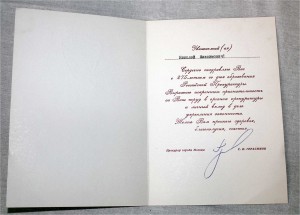 Уважаемый (ая)
Николай Николаевич!
Сердечно поздравляю Вас
с 275-летием со дня образования
Российской Прокуратуры
Выражаю искреннюю признательность
за Ваш труд в органах прокуратуры
и личный вклад в дело
укрепления законности
Желаю Вам крепкого здоровья,
благополучия, счастья.
Прокурор города Москвы